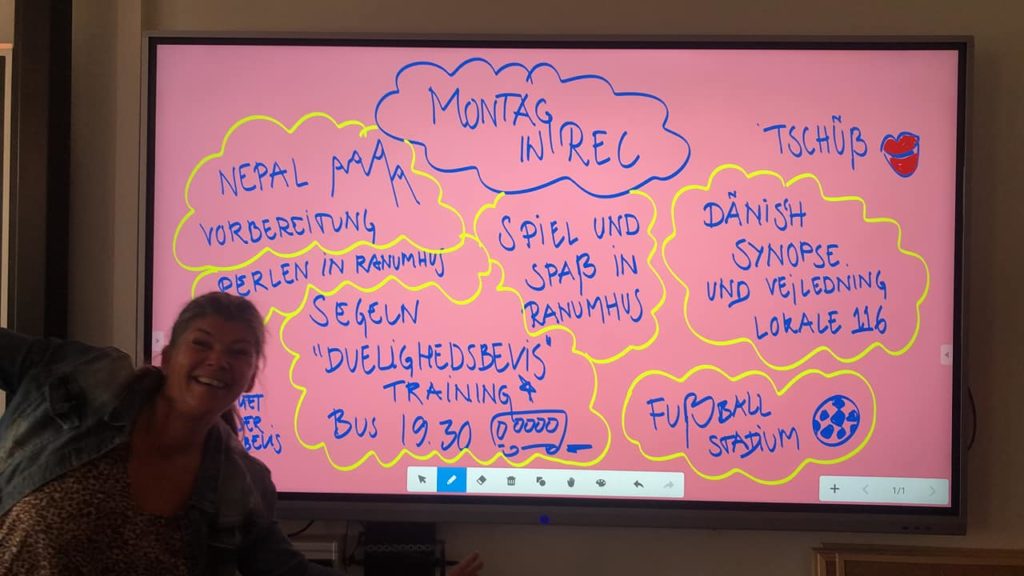 MONTAG
IN REC
TSCHÜß
NEPAL
VORBEREITUNG
PERLEN IN RANUMHUS
SPIEL UND
SPAß IN
RANUMHUS
DÄNISH
SYNOPSE
UND VEJLEDNING
LOKALE 116
SEGELN
"DUELIGHEDSBEVIS"
TRAINING
BUS 19.30
FUßBALL
STADIUM
1/1